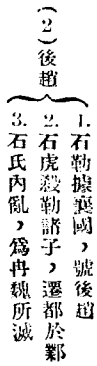 (2)後趙
1.石勒據襄國，號後趙
2.石虎殺勒諸子，遷都於鄴
3.石氏內亂，爲冉魏所滅